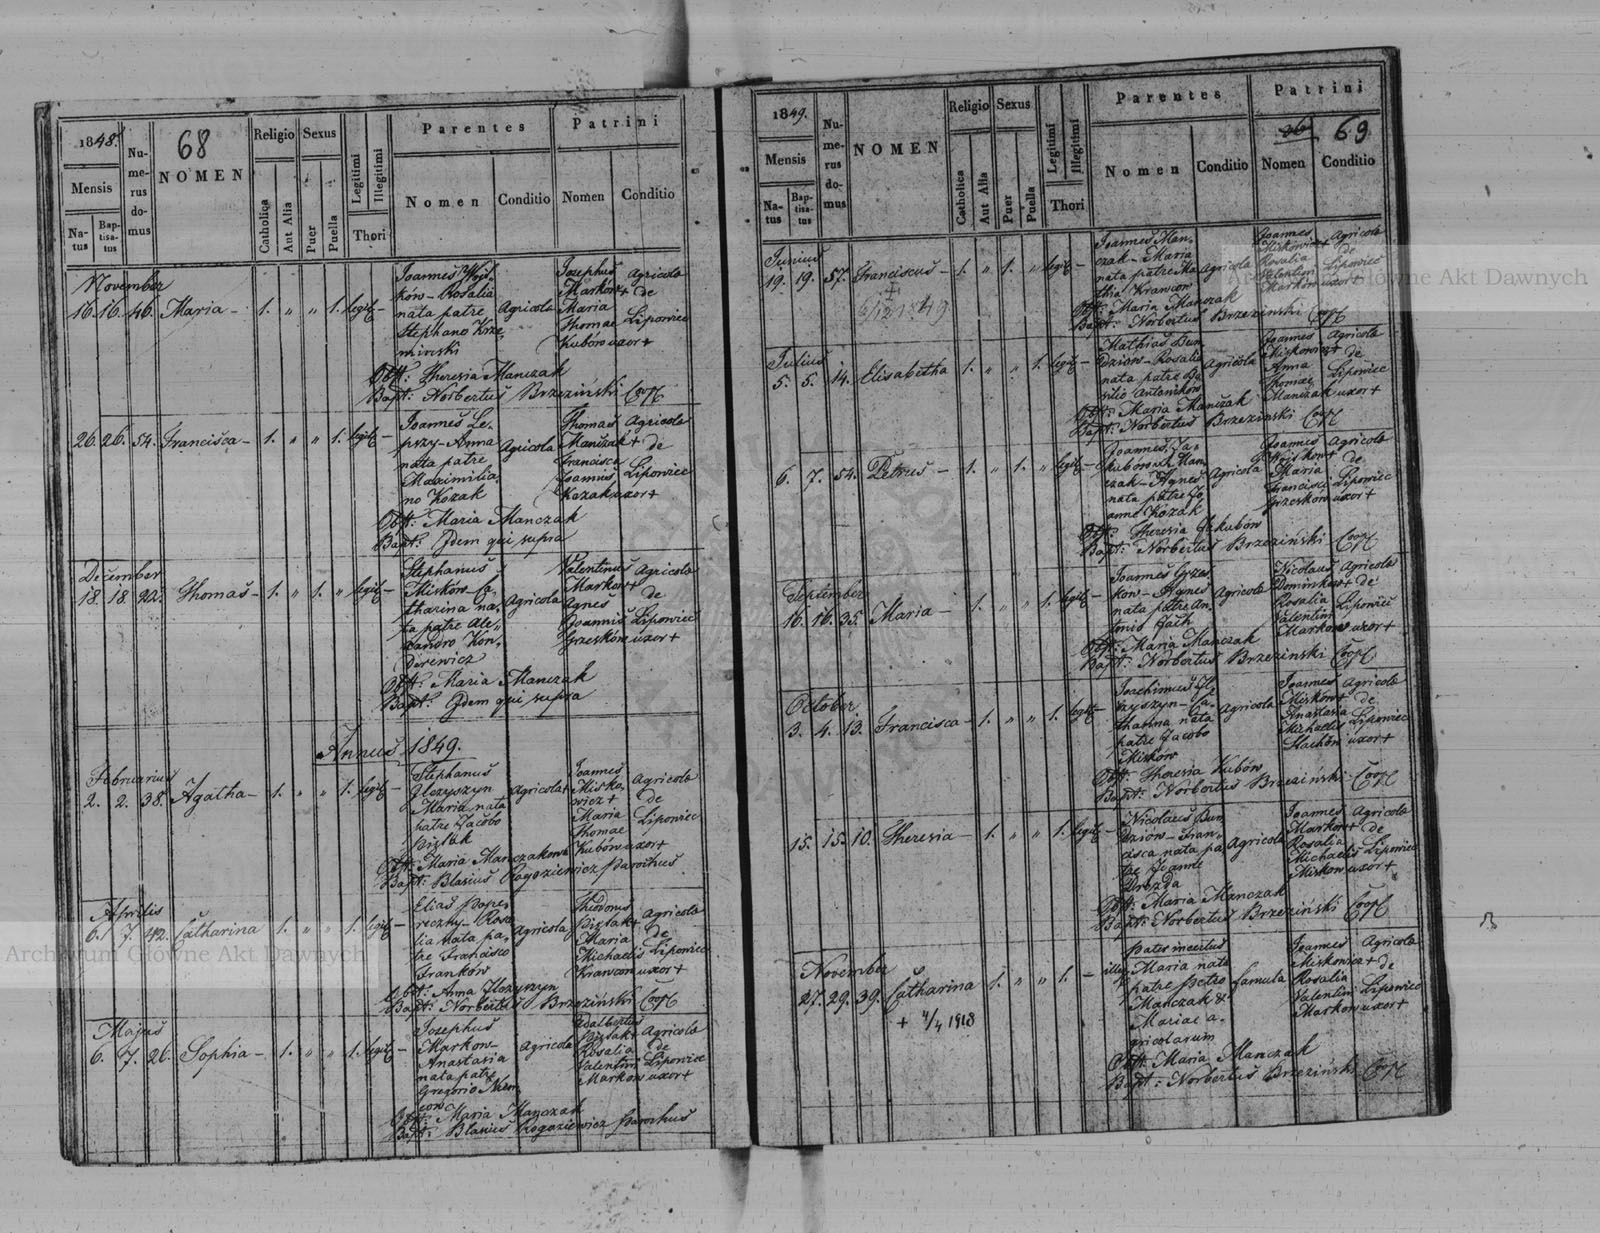 1848.
68
Numerus domus
NOMEN
Religio
Sexus
Legitimi
Illegitimi
Parentes
Patrini
Mensis
Natus
Baptisatus
Catholica
Aut Alia
Puer
Puella
Thori
Nomen
Conditio
Nomen
Conditio
November
16. 16. 46. Maria - 1. " " 1. legit -
Joannes Wojt-
ków - Rosalia
nata patre
Stephano Krze
minski
Agricola
Josephus
Marków +
Maria
Thomae
Kubów uxor +
Agricola
de
Lipowiec
Obst: Theresia Manczak
Bapt: Norbertus Brzeziński Coop
26. 26. 54. Francisca - 1. " " 1. legit -
Joannes Le-
przy - Anna
nata patre
Maximilia
no Kozak
Agricola
Thomas
Manczak +
Francisca
Joannis
Kozak uxor +
Agricola
de
Lipowiec
Obst: Maria Manczak
Bapt: Idem qui supra
December
18. 18. 22. Thomas - 1. " 1. " legit -
Stephanus
Misków - Ca-
tharina na-
ta patre Ale-
xandro Kon-
direwicz
Agricola
Valentinus
Markow +
Agnes
Joannis
Grzesków uxor +
Agricola
de
Lipowiec
Obst: Maria Manczak
Bapt: Idem qui supra
Annus 1849.
Februarius
2. 2. 38. Agatha - 1. " " 1. legit -
Stephanus
Maria nata
patre Jacobo
Agricola +
Joannes
Misko-
wicz +
Maria
Thomae
Kubów uxor +
Agricola
de
Lipowiec
Obst: Maria Manczakowa
Bapt: Blasius Rogoziewicz Parochus
Aprilis
6. 7. 42. Catharina 1. " " 1. legit -
Elias Pope-
reczny - Rosa
lia nata pa-
tre Francisco
Franków
Agricola
Theodorus
Maria
Michaelis
Krawcon uxor +
Agricola
de
Lipowiec
Bapt: Norbertus Brzeziński Coop
Majus
6. 7. 26. Sophia - 1. " " 1. legit -
Josephus
Markow -
Anastasia
nata patre
Gregorio
Agricola
Adalbertus
Rosalia
Valentini
Markow uxor +
Agricola
de
Lipowiec
Obst: Maria Manczak
Bapt: Blasius Rogoziewicz Parochus
1849.
69
Numerus domus
NOMEN
Religio
Sexus
Legitimi
Illegitimi
Parentes
Patrini
Mensis
Natus
Baptisatus
Catholica
Aut Alia
Puer
Puella
Thori
Nomen
Conditio
Nomen
Conditio
Junius
19. 19. 57. Franciscus - 1. " 1. " legit -
Joannes Man-
czak - Maria
nata patre Ma
thia Krawcon
Agricola
Joannes
Miskowicz +
Rosalia
Valentini
Markow uxor +
Agricola
de
Lipowiec
Obst: Maria Manczak
Bapt: Norbertus Brzezinski Coop
Julius
5. 5. 14. Elisabetha 1. " " 1. legit -
Mathias Bun
dziow - Rosalia
nata patre Ba
silio Antonikow
Agricola
Joannes
Miskowicz +
Anna
Thomae
Manczak uxor +
Agricola
de
Lipowiec
Obst: Maria Manczak
Bapt: Norbertus Brzezinski Coop
6. 7. 54. Petrus - 1. " 1. " legit -
Joannes Ja-
kubów
czak - Agnes
nata patre Jo
anne Kozak
Agricola
Joannes
Wojtkow +
Maria
Francisci
Grzeskow uxor +
Agricola
de
Lipowiec
Obst: Theresia Jakubów
Bapt: Norbertus Brzeziński Coop
September
16. 16. 35. Maria - 1. " " 1. legit -
Joannes Grzes
kow - Agnes
nata patre An
tonio
Agricola
Nicolaus
Dominkow +
Rosalia
Valentini
Markow uxor +
Agricola
de
Lipowiec
Obst: Maria Manczak
Bapt: Norbertus Brzezinski Coop
October
3. 4. 13. Francisca - 1. " " 1. legit -
Joachimus
Ca-
tharina nata
patre Jacobo
Misków
Agricola
Joannes
Misków +
Anastasia
Michaelis
Stachów uxor +
Agricola
de
Lipowiec
Obst: Theresia Kubów
Bapt: Norbertus Brzezinski Coop
15. 15. 10. Theresia - 1. " " 1. legit -
Nicolaus Bun
dziow - Fran-
cisca nata pa
tre Joanne
Drozda
Agricola
Joannes
Markow +
Rosalia
Michaelis
Miskow uxor +
Agricola
de
Lipowiec
Obst: Maria Manczak
Bapt: Norbertus Brzeziński Coop
November
27. 29. 39. Catharina 1. " " 1. - illeg
+ 4/4 1918
Pater incertus
Maria nata
patre Petro
Manczak &
Mariae a-
gricolarum
famula
Joannes
Miskowicz +
Rosalia
Valentini
Markow uxor +
Agricola
de
Lipowiec
Obst: Maria Manczak
Bapt: Norbertus Brzezinski Coop
Archiwum Główne Akt Dawnych
Archiwum Główne Akt Dawnych